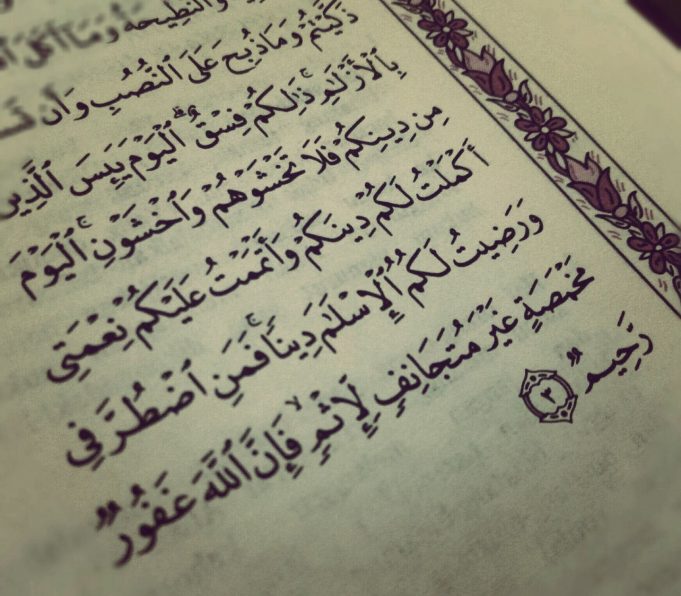 وَالنَّطِيحَةُ وَمَا أَكَلَ
ذَكَّيْتُمْ وَمَا ذُبِحَ عَلَى ٱلنُّصُبِ وَأَن
بِٱلْأَزْلَٰمِ ۚ ذَٰلِكُمْ فِسْقٌ ۗ ٱلْيَوْمَ يَئِسَ ٱلَّذِينَ
مِن دِينِكُمْ فَلَا تَخْشَوْهُمْ وَٱخْشَوْنِ ۚ ٱلْيَوْمَ
أَكْمَلْتُ لَكُمْ دِينَكُمْ وَأَتْمَمْتُ عَلَيْكُمْ نِعْمَتِى
وَرَضِيتُ لَكُمُ ٱلْإِسْلَٰمَ دِينًا ۚ فَمَنِ ٱضْطُرَّ فِى
مَخْمَصَةٍ غَيْرَ مُتَجَانِفٍ لِّإِثْمٍ ۙ فَإِنَّ ٱللَّهَ غَفُورٌ
رَّحِيمٌ ٣